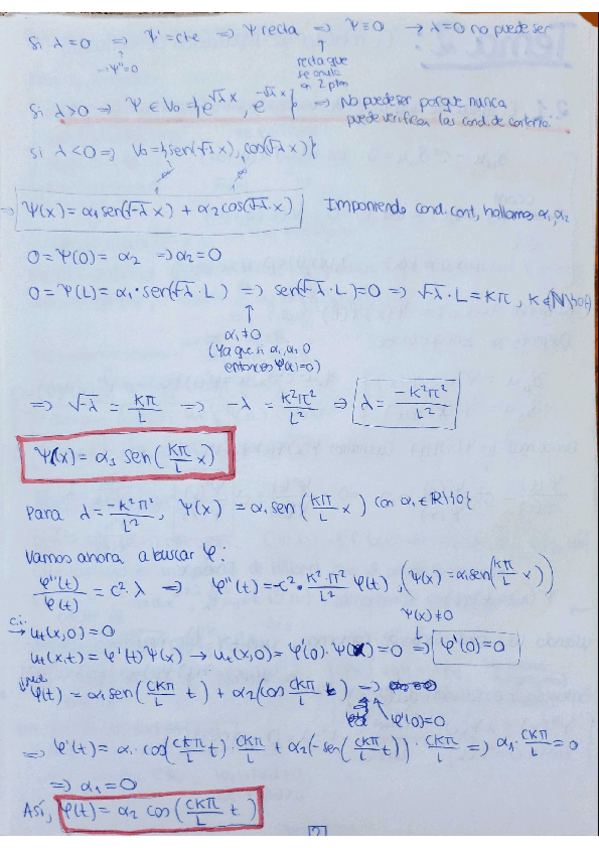 Si λ=0 ⇒ Ψ'=cte ⇒ Ψ recta ⇒ Ψ≡0 → λ=0 no puede ser
→Ψ''=0
recta que
se anula
en 2 ptos
Si λ>0 ⇒ Ψ ∈ V₀ = {e^{√λ x}, e^{-√λ x}} ⇒ No puede ser porque nunca
puede verificar las cond. de contorno.
Si λ<0 ⇒ V₀={sen(√-λ x), cos(√-λ x)}
→ Ψ(x) = α₁ sen(√-λ x) + α₂ cos(√-λ x) Imponiendo cond. cont, hallamos α₁, α₂
0=Ψ(0)= α₂ ⇒ α₂=0
0=Ψ(L)= α₁·sen(√-λ·L) ⇒ sen(√-λ·L)=0 ⇒ √-λ·L=Kπ, K∈ℕ\{0}
α₁≠0
(Ya que si α₁, α₂ 0
entonces Ψ(x)=0)
⇒ √-λ = Kπ/L ⇒ -λ = K²π²/L² ⇒ λ= -K²π²/L²
Ψ(x)= α₁ sen(Kπ/L x)
Para λ= -K²π²/L², Ψ(x) = α₁ sen(Kπ/L x) con α₁∈ℝ\{0}
Vamos ahora a buscar φ:
φ''(t)/φ(t) = c²·λ ⇒ φ''(t)=-c²·K²·π²/L² φ(t), (Ψ(x)=α₁sen(Kπ/L x))
c.i. Ψ(x)≠0
→ u_t(x,0)=0
u_t(x,t)=φ'(t)Ψ(x) → u_t(x,0)=φ'(0)·Ψ(x)=0 ⇒ φ'(0)=0
φ(t)= α₁ sen(cKπ/L t) + α₂(cos cKπ/L t) ⇒
φ'(0)=0
⇒ φ'(t)= α₁·cos(cKπ/L t)·cKπ/L + α₂(-sen(cKπ/L t))·cKπ/L ⇒ α₁·cKπ/L=0
⇒ α₁=0
Así, φ(t)= α₂ cos(cKπ/L t)